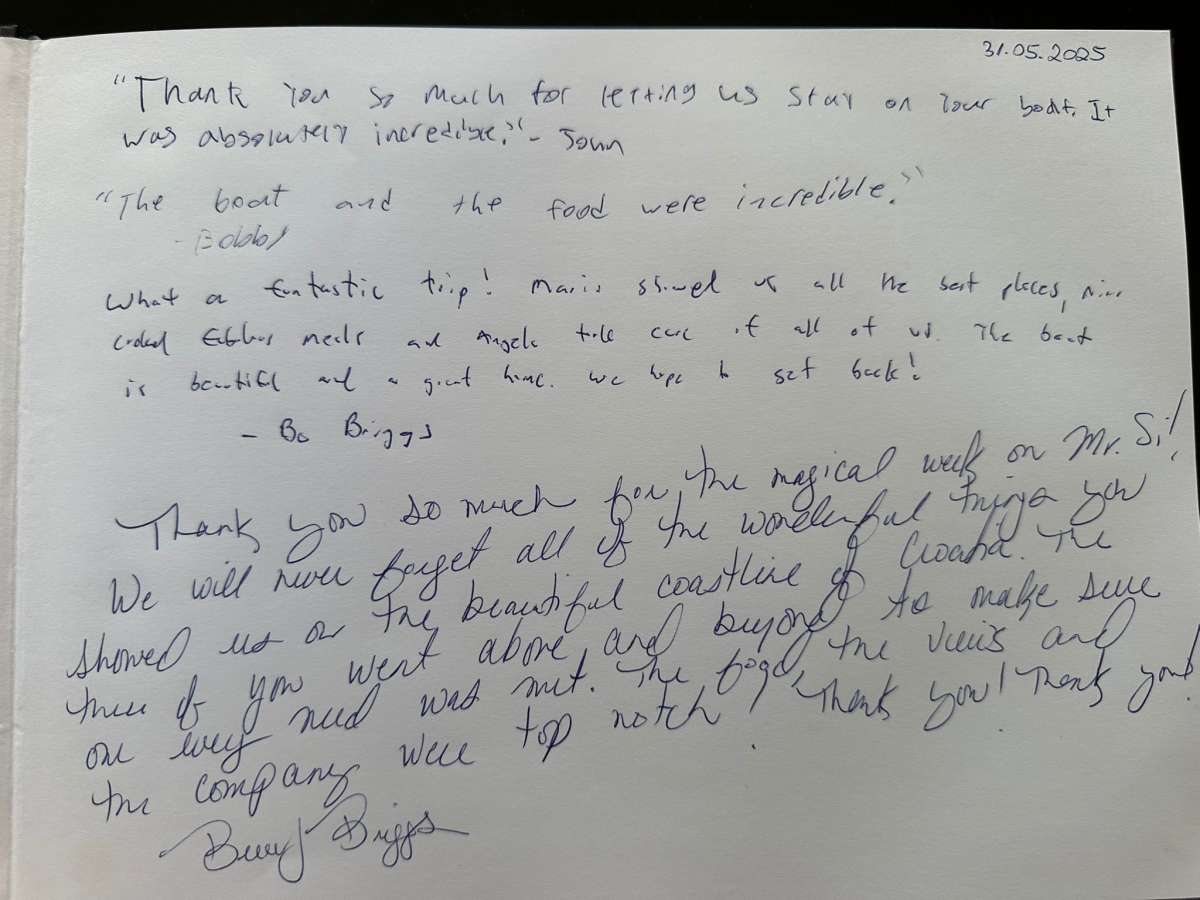 31.05.2025
"Thank you so much for letting us stay on your boat. It
was absolutely incredible." - John
"The boat and the food were incredible."
- Bobby
What a fantastic trip! Mario showed us all the best places, Nino
cooked fabulous meals and Angela took care of all of us. The boat
is beautiful and a great home. We hope to get back!
- Bo Briggs
Thank you so much for the magical week on Mr. Si!
We will never forget all of the wonderful things you
showed us on the beautiful coastline of Croatia. The
three of you went above and beyond to make sure
our every need was met. The food, the views and
the company were top notch! Thank you! Thank you!
Briggs